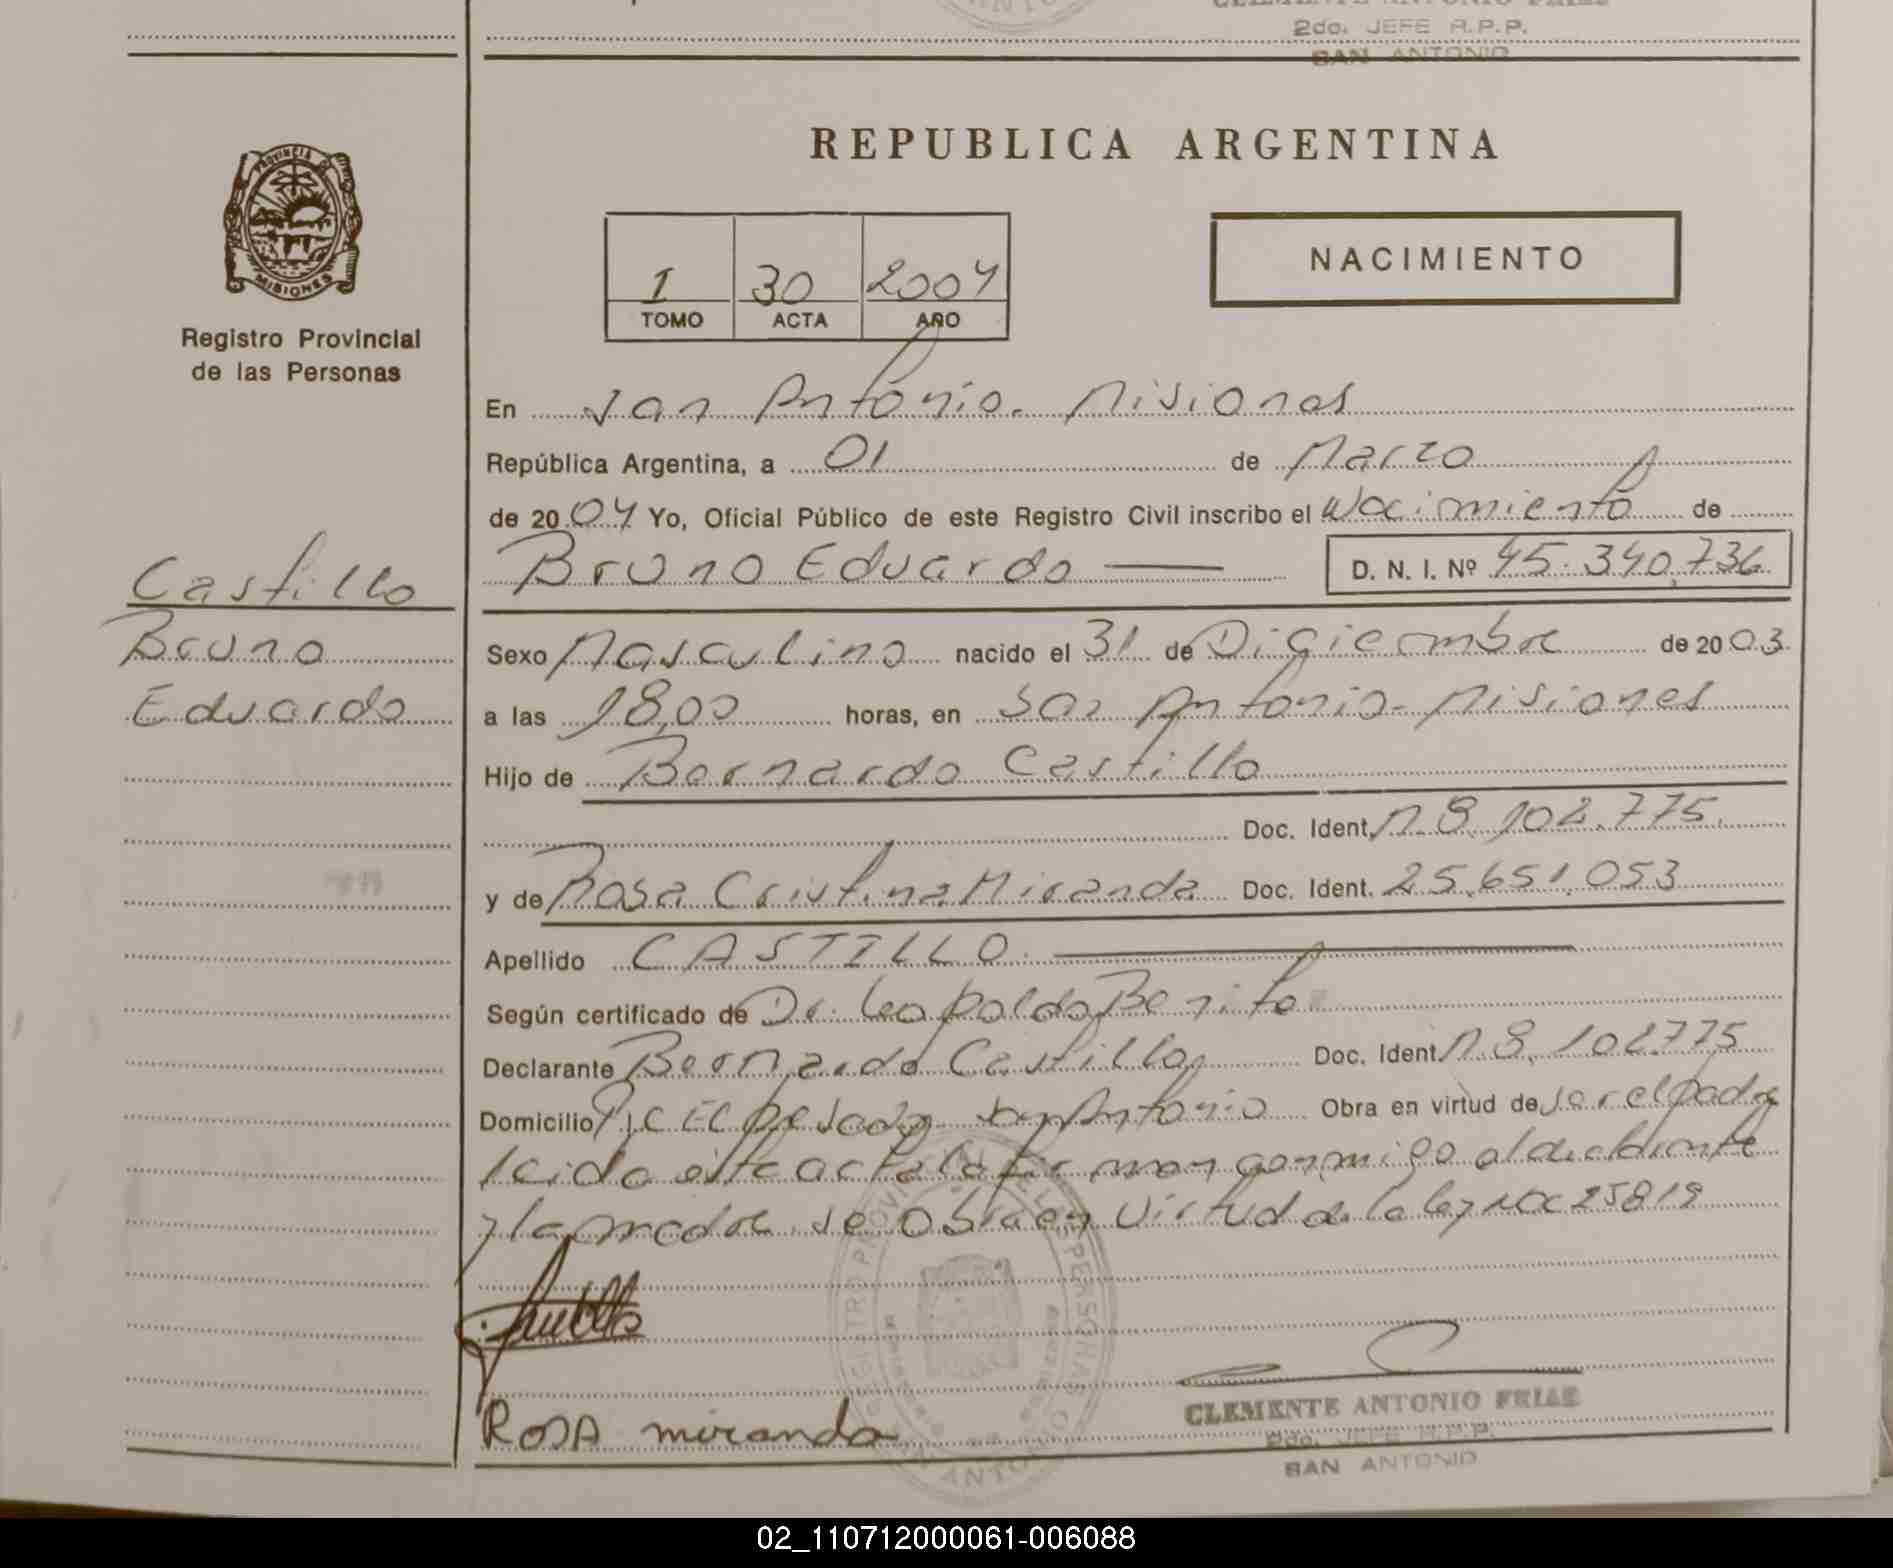 2do. JEFE R.P.P.
SAN ANTONIO
PROVINCIA DE
MISIONES
Registro Provincial
de las Personas
Castillo
Bruno
Eduardo
REPUBLICA ARGENTINA
I 30 2004
TOMO ACTA AÑO
NACIMIENTO
En San Antonio. Misiones
República Argentina, a 01 de Marzo
de 2004 Yo, Oficial Público de este Registro Civil inscribo el Nacimiento de
Bruno Eduardo D. N. I. Nº 45.340.736
Sexo Masculino nacido el 31 de Diciembre de 2003
a las 18,00 horas, en San Antonio - Misiones
Hijo de Bernardo Castillo
Doc. Ident. M.8.102.775.
y de Rosa Cristina Miranda Doc. Ident. 25.651.053
Apellido CASTILLO.
Según certificado de Dr. Leopoldo Benito
Declarante Bernardo Castillo Doc. Ident. M 8.102.775
Domicilio San Antonio Obra en virtud de ser el padre
leida este acta la firman conmigo el declarante
y la madre. se obra en virtud de la ley Nº 25819
Castillo
ROSA miranda
REGISTRO PROVINCIAL DE LAS PERSONAS
SAN ANTONIO
CLEMENTE ANTONIO FRIAS
2do. JEFE R.P.P.
SAN ANTONIO
02_110712000061-006088